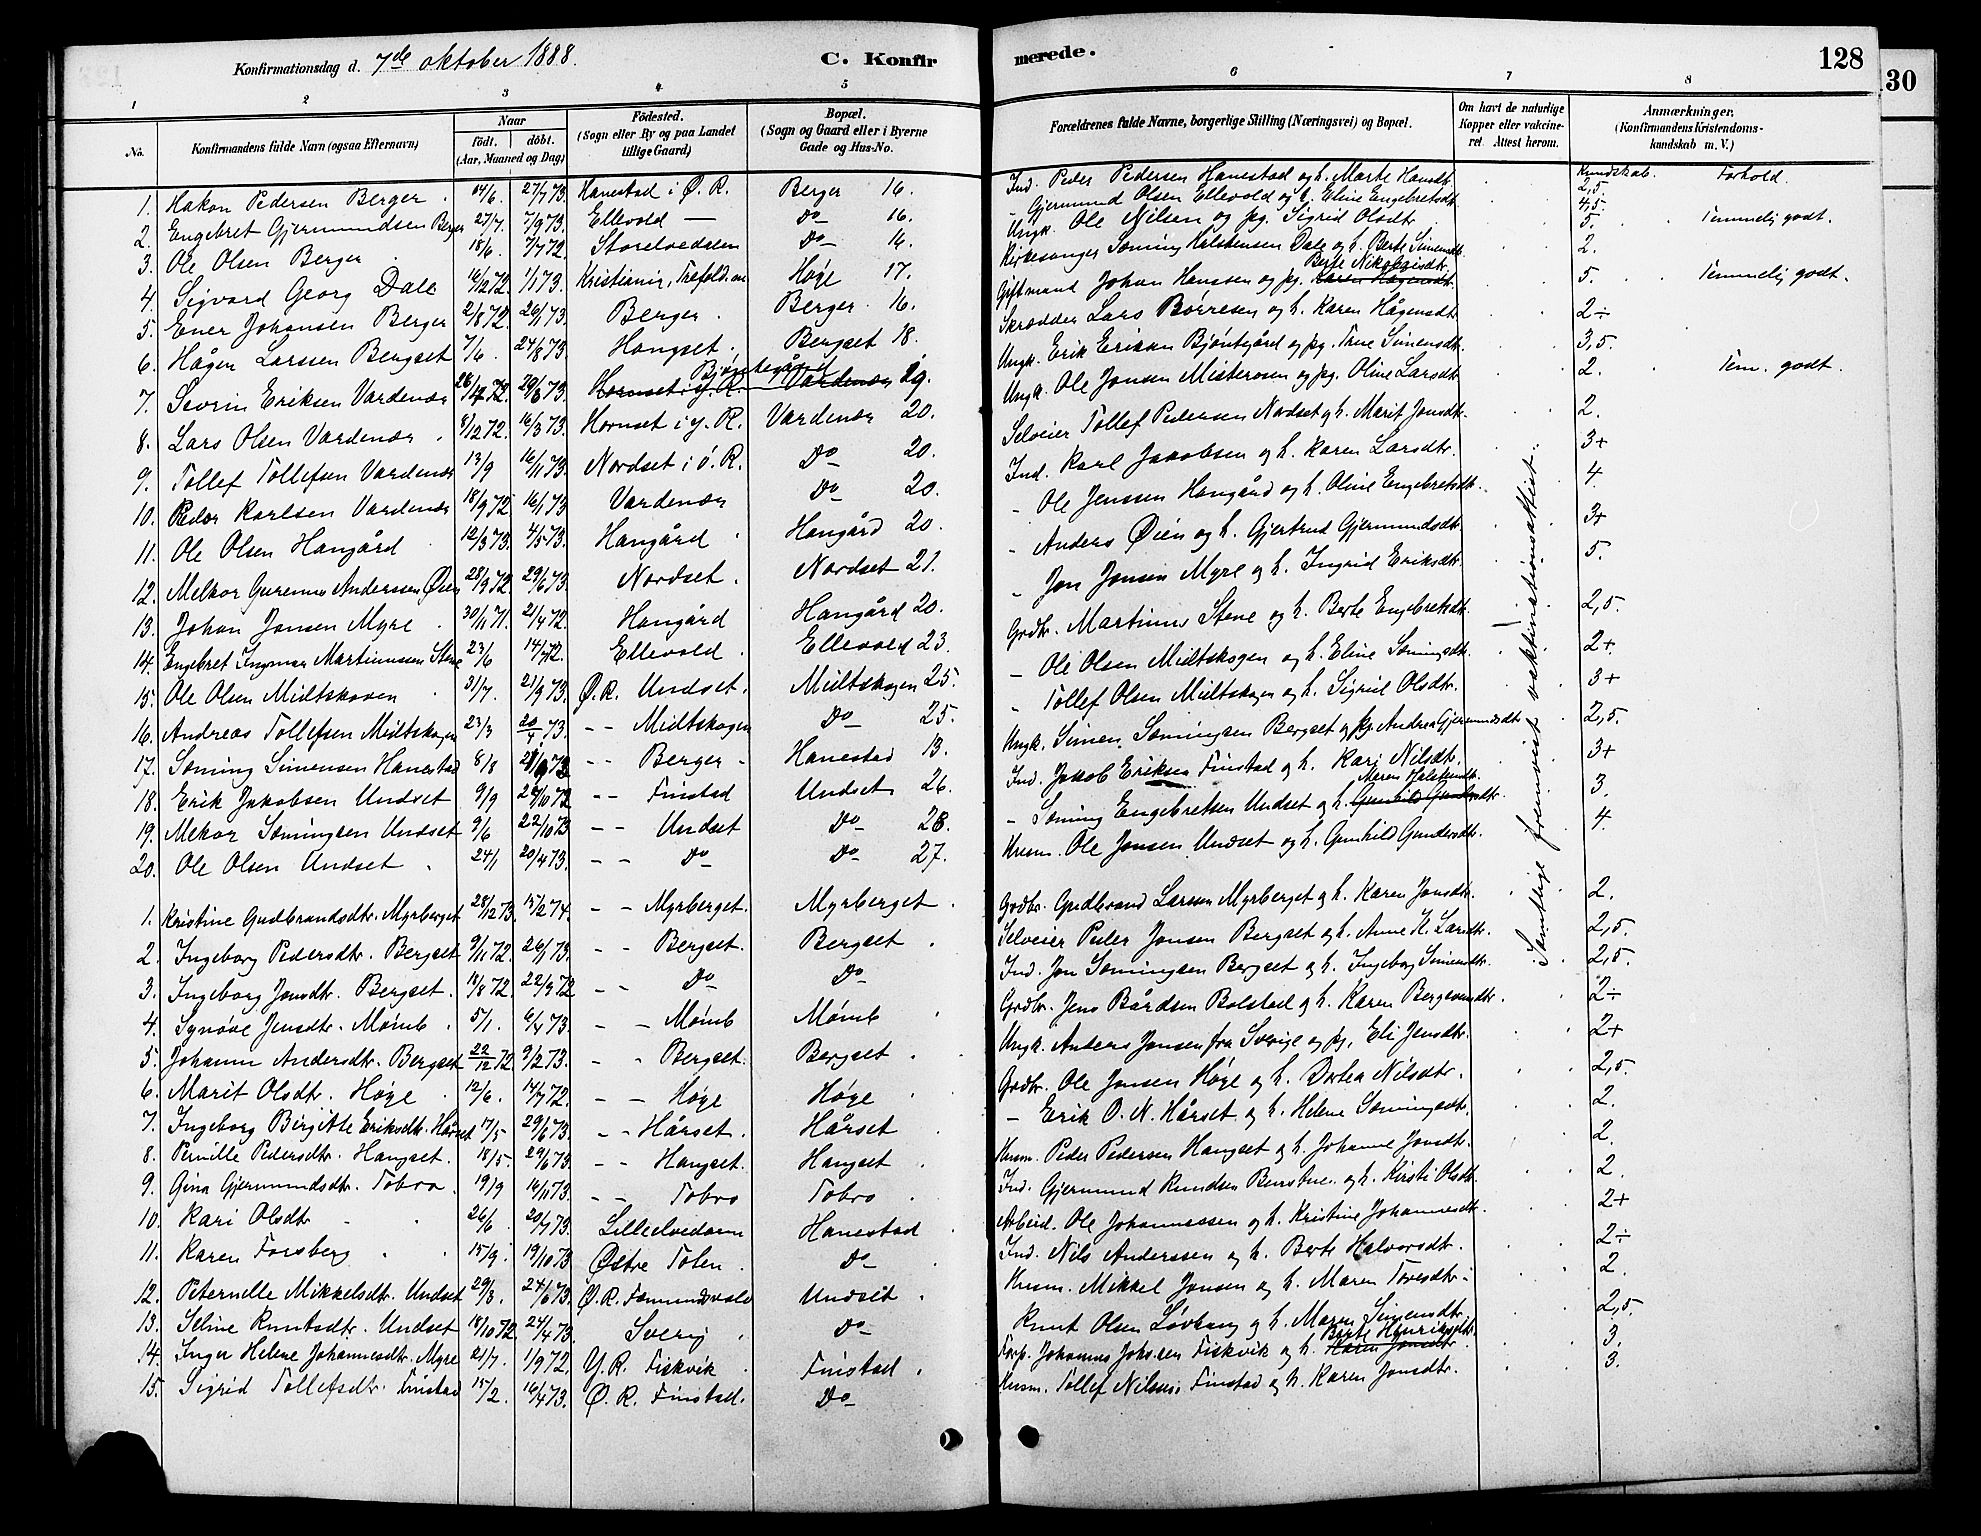 Konfirmationsdag d. 7de oktober 1888. C. Konfirmerede. 128
30
1 2 3 4 5 6 7 8
No. Konfirmandens fulde Navn (ogsaa Efternavn) Naar født. døbt. (Aar, Maaned og Dag) Fødested. (Sogn eller By og paa Landet tillige Gaard) Bopæl. (Sogn og Gaard eller i Byerne Gade og Hus-No. Forældrenes fulde Navne, borgerlige Stilling (Næringsvei) og Bopæl. Om havt de naturlige Kopper eller vakcineret. Attest herom. Anmærkninger. (Konfirmandens Kristendomskundskab m. V.)
Kundskab. Forhold.
1. Hakon Pedersen Berger 14/6. 27/7 73. Hanestad i Ø. R. Berger 16. Ind. Peder Pedersen Hanestad og h. Marte Hansdtr. 2,5.
2. Engebret Gjermundsen Berger 27/7. 7/9 73. Ellevold — Do 16. - Gjermund Olsen Ellevold og h. Eline Engebretsdtr. 4,5
3. Ole Olsen Berger 18/6. 7/7 72. Storelvedalen Do 16. Ungk. Ole Nilsen og pg. Sigrid Olsdtr. 5. Temmelig godt.
4. Sigvard Georg Dale 16/12 72. 1/1 73. Kristiania, Trefold. m Høge 17. Kirkesanger Søming Halstensen Dale og h. Berte Simensdtr. 2.
5. Ener Johansen Berger 2/8 72. 26/1 73. Berger Berger 16. Giftmand Johan Hanssen og pg. Karen Hågensdtr. Berte Nikolaisdtr. 5. Temmelig godt.
6. Hågen Larssen Bergset 7/6. 24/8 73. Hangset Bergset 18. Skrædder Lars Børresen og h. Karen Hågensdt. 2÷
7. Sevrin Eriksen Vardenær 28/12 72. 29/3 73. Hornset i y. R. Bjøntegård Vardenær 29. Ungk. Erik Eriksen Bjøntegård og pg. Trine Simensdtr. 3,5.
8. Lars Olsen Vardenær 8/12 72. 16/3 73. Hornset i y. R. Vardenær 20. Ungk. Ole Jonsen Misterosen og pg. Oline Larsdtr. 2. Tem. godt.
9. Tollef Tollefsen Vardenær 13/9 16/11 73. Nordset i Ø. R. Do 20. Selveier Tollef Pedersen Nordset og h. Marit Jonsdtr. 2.
10. Peder Karlsen Vardenær 18/9 72 16/1 73 Vardenær Do 20. Ind. Karl Jakobsen og h. Karen Larsdtr. 3+
11. Ole Olsen Hangård 12/3 73. 4/5 73. Hangård Hangård 20. - Ole Jenssen Hangård og h. Oline Engebretsdtr. 4
12. Melkor Gurenus Anderssen Øien 28/9 72. 29/6 73. Nordset Nordset 21. - Anders Øien og h. Gjertrud Gjermundsdtr. 3+
13. Johan Jonsen Myre 30/11 71. 21/4 72. Hangård Hangård 20. - Jon Jonsen Myre og h. Ingrid Eriksdtr. 5.
14. Engebret Ingmar Martinussen Stene 23/6 14/7 72. Ellevold Ellevold 23. Grdbr. Martinus Stene og h. Berte Engebretsdtr. 2,5.
15. Ole Olsen Midtskoven 31/7. 21/9 73. Ø. R. Undset. Midtskogen 25. - Ole Olsen Midtskogen og h. Eline Sømingsdt. 2+
16. Andreas Tollefsen Midtskogen 23/3 20/4 73. - - Midtskogen Do 25. - Tollef Olsen Midtskogen og h. Sigrid Olsdtr. 3+
17. Søming Simensen Hanestad 8/8 21/9 73 - - Berger - Hanestad 13. Ungk. Simen Sømingsen Bergset og pg. Andrea Gjermundsdtr. 2,5.
18. Erik Jakobsen Undset 9/9 - - Finstad Undset 26. Ind. Jakob Eriksen Finstad og h. Kari Nilsdtr. 3+
19. Mekor Sømingsen Undset 9/6 22/10 73 - - Undset Do 28. - Søming Engebretsen Undset og h. Gunhild Gundersdtr. Maren Halstensdtr. 3.
20. Ole Olsen Undset 24/1 20/4 73. - - Do Do 27. Husm. Ole Jonsen Undset og h. Gunhild Gundersdtr. 4.
1. Kristine Gudbrandsdtr. Myrberget 28/12 73. 15/2 74. - - Myrberget. Myrberget Grdbr. Gudbrand Larsen Myrberget og h. Karen Jonsdtr. 2.
2. Ingeborg Pedersdtr. Bergset 9/11 72. 26/1 73. - - Bergset. Bergset Selveier Peder Jonsen Bergset og h. Anne K. Larsdtr. 2,5.
3. Ingeborg Jonsdtr. Bergset 18/8 72. 22/9 72 - - Do Do Ind. Jon Sømingsen Bergset og h. Ingeborg Simensdtr. 2,5.
4. Synøve Jensdtr. Mømb 5/1. 6/4 73. - - Mømb Mømb Grdbr. Jens Bårdsen Bolstad og h. Karen Bergesensdtr. 2÷
5. Johanne Andersdtr. Bergset 22/12 72. 9/2 73. - - Bergset. Bergset Ungk. Anders Jonsen fra Sverige og pg. Eli Jensdtr. 2+
6. Marit Olsdtr. Høge 12/6. 14/7 72. - - Høge Høge Grdbr. Ole Jonsen Høge og h. Dortea Nilsdtr. 2,5.
7. Ingeborg Birgitte Eriksdtr. Hårset 17/5 29/6 73. - - Hårset. Hårset - Erik O. N. Hårset og h. Helene Sømingsdtr. 2.
8. Pernille Pedersdtr. Hangset. 18/5. 29/6 73. - - Hangset. Hangset Husm. Peder Pedersen Hangset og h. Johanne Jonsdtr. 2.
9. Gina Gjermundsdtr. Tobro 19/9 16/11 73. - - Tobro Tobro Ind. Gjermund Knudsen og h. Kirsti Olsdt. 2.
10. Kari Olsdtr 26/6 20/7 73. Lilleelvedalen Hanestad Arbeid. Ole Johannessen og h. Kristine Johannesdtr. 2+
11. Karen Forsberg 15/9. 19/10 73 Østre Toten Do Ind. Nils Anderssen og h. Berte Halvorsdtr. 2÷
12. Peternelle Mikkelsdtr. Undset 29/3. 24/6 73. Ø. R. Fæmundsvold Undset Husm. Mikkel Jonsen og h. Maren Toresdtr. 2.
13. Seline Knutsdtr. Undset 18/10 72. 24/4 73. Sverig Do Knut Olsen Løvhaug og h. Maren Simensdtr. 2,5.
14. Inger Helene Johannesdtr. Myre 21/7. 1/9 72. Y. R. Fiskvik Finstad Forp. Johannes Johssen Fiskvik og h. Karen Jonsdtr. Berte Henriksdtr. 3.
15. Sigrid Tollefsdtr. Finstad 15/2. 16/4 73. Ø. R. Finstad. Do Husm. Tollef Nilssen Finstad og h. Karen Jonsdtr. 3.
Samtlige fremvist vakcinationsattest.